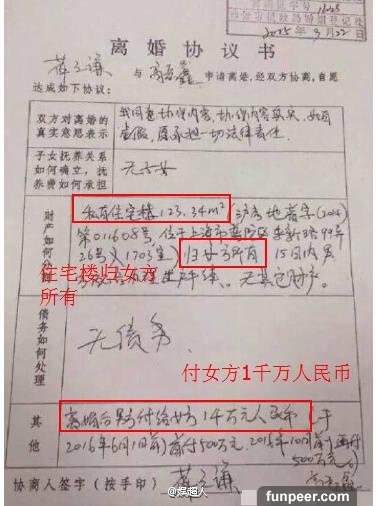 16425
2015年9月22日
离婚协议书
薛之谦 与 高磊鑫 申请离婚,经双方协商,自愿
达成如下协议:
双方对离婚的
真实意思表示
我同意协议内容,协议内容真实,如有
虚假,愿承担一切法律责任.
子女抚养关系
如何确立,抚
养费如何承担
无子女
财产如何处理
私有住宅楼123.34m²(沪房地普字(2014)
第011608号,位于上海市普陀区
26号1703室)归女方所有 15日内
无其它财产.
住宅楼归女方
所有
债务如何处理
无债务
付女方1千万人民币
其他
离婚后男方付给女方1千万元人民币(于
2016年6月1日前)首付500万元,2016年10月前
500万元)
协商人签字(按手印) 薛之谦 高磊鑫
@娱超人
funpeer.com